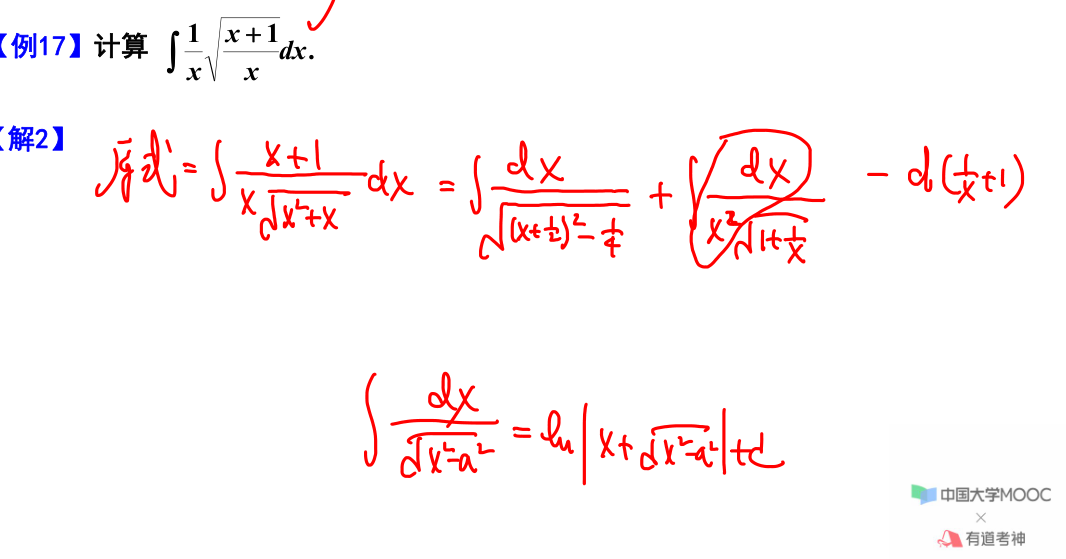 【例17】计算 ∫ 1/x √((x+1)/x) dx.
【解2】 原式 = ∫ (x+1)/(x√(x²+x)) dx = ∫ dx/√((x+1/2)²-1/4) + ∫ dx/(x²√(1+1/x)) - d(1/x+1)
∫ dx/√(x²-a²) = ln|x+√(x²-a²)|+C
中国大学MOOC
×
有道考神